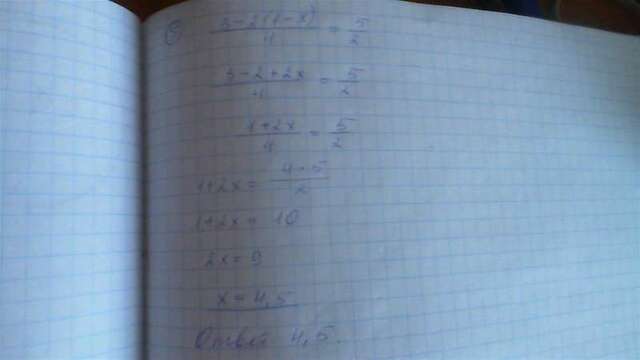 5) (3-2(1-x))/4 = 5/2
(3-2+2x)/4 = 5/2
(1+2x)/4 = 5/2
1+2x = (4·5)/2
1+2x = 10
2x = 9
x = 4,5
Ответ 4,5.